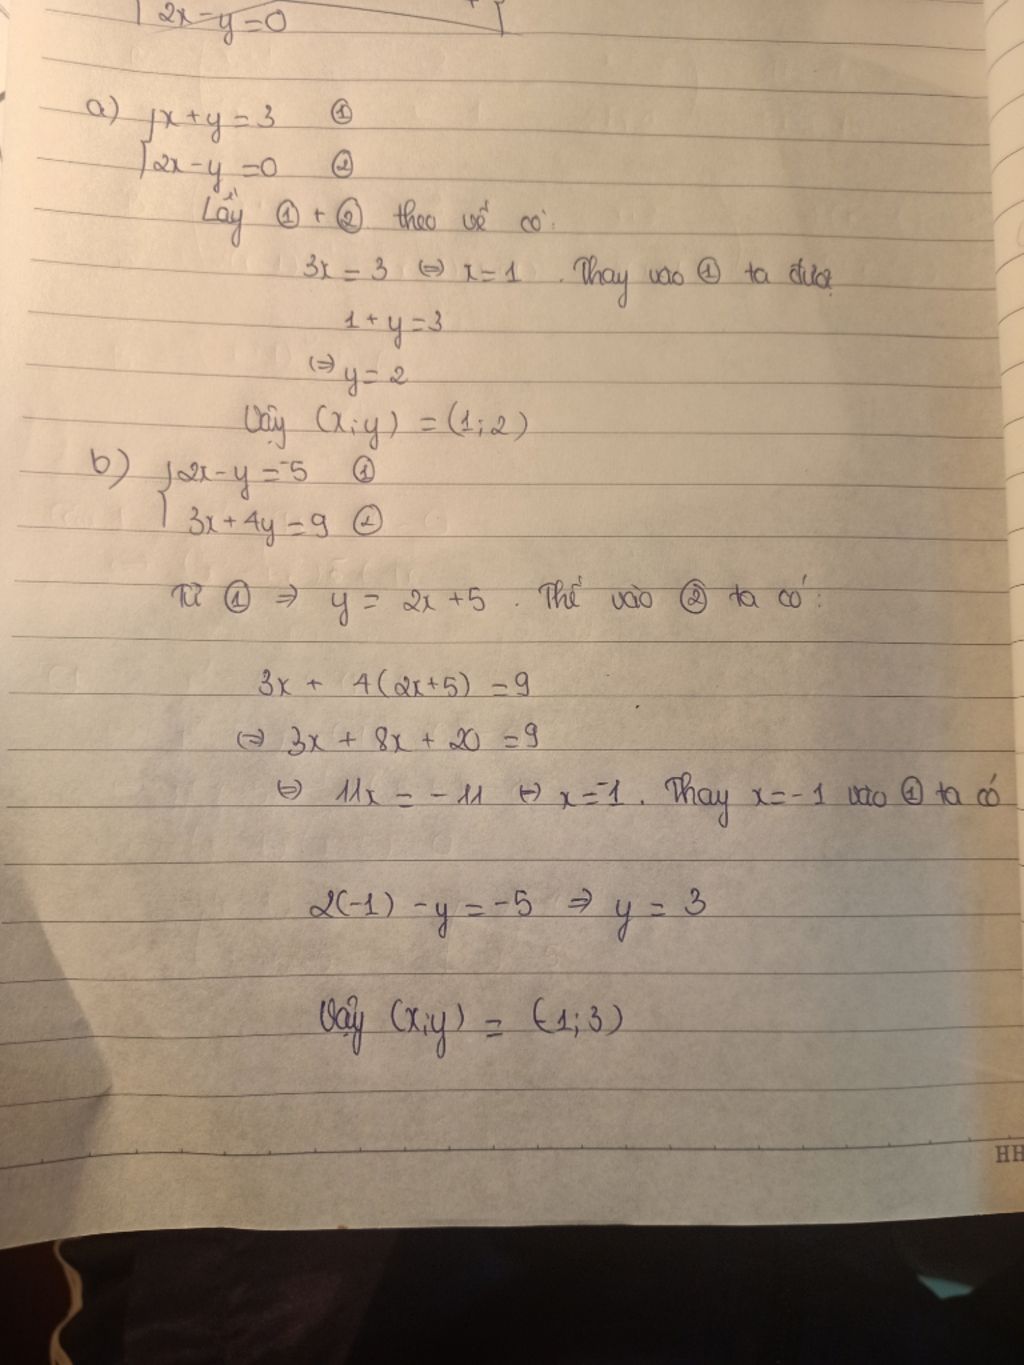 2x - y = 0
a) { x + y = 3 ①
2x - y = 0 ②
Lấy ① + ② theo vế có:
3x = 3 ⇔ x = 1 . Thay vào ① ta được
1 + y = 3
⇔ y = 2
Vậy (x; y) = (1; 2)
b) { 2x - y = -5 ①
3x + 4y = 9 ②
Từ ① ⇒ y = 2x + 5 . Thế vào ② ta có:
3x + 4(2x+5) = 9
⇔ 3x + 8x + 20 = 9
⇔ 11x = -11 ⇔ x = -1 . Thay x = -1 vào ① ta có
2(-1) - y = -5 ⇒ y = 3
Vậy (x; y) = (-1; 3)
HH